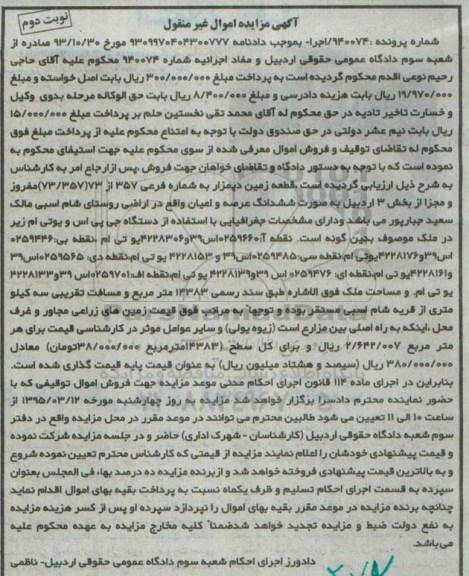 آگهی مزایده اموال غیر منقول
نوبت دوم
شماره پرونده :۹۴۰۰۷۴/اجرا- بموجب دادنامه ۹۳۰۹۹۷۰۴۰۴۳۰۰۷۷۷ مورخ ۹۳/۱۰/۳۰ صادره از
شعبه سوم دادگاه عمومی حقوقی اردبیل و مفاد اجرائیه شماره ۹۴۰۰۷۴ محکوم علیه آقای حاجی
رحیم نوعی اقدم محکوم گردیده است به پرداخت مبلغ ۳۰۰/۰۰۰/۰۰۰ ریال بابت اصل خواسته و مبلغ
۱۹/۹۷۰/۰۰۰ ریال بابت هزینه دادرسی و مبلغ ۸/۴۰۰/۰۰۰ ریال بابت حق الوکاله مرحله بدوی وکیل
و خسارت تاخیر تادیه در حق محکوم له آقای محمد تقی نخستین حلم بر پرداخت مبلغ ۱۵/۰۰۰/۰۰۰
ریال بابت نیم عشر دولتی در حق صندوق دولت با توجه به امتناع محکوم علیه از پرداخت مبلغ فوق
محکوم له تقاضای توقیف و فروش اموال معرفی شده از سوی محکوم علیه جهت استیفای محکوم به
نموده است که با توجه به دستور دادگاه و تقاضای خواهان جهت فروش ،پس ازارجاع امر به کارشناس
به شرح ذیل ارزیابی گردیده است .قطعه زمین دیمزار به شماره فرعی ۳۵۷ از ۷۳(۷۳/۳۵۷)مفروز
و مجزا از بخش ۳ اردبیل به صورت ششدانگ عرصه و اعیان واقع در اراضی روستای شام اسبی مالک
سعید جبارپور می باشد ودارای مشخصات جغرافیایی با استفاده از دستگاه جی پی اس و یوتی ام زیر
در ملک موصوف بدین گونه است. نقطه آ:۰۲۵۹۶۶۰اس۳۹و۴۲۲۸۳۰۶ یو تی ام ،نقطه بی:۰۲۵۹۴۴۶
اس۳۹و۴۲۲۸۱۷۶یوتی ام،نقطه سی:۰۲۵۹۴۸۵اس۳۹ و ۴۲۲۸۱۵۳ یو تی ام،نقطه دی: ۰۲۵۹۵۶۵اس۳۹
و۴۲۲۸۱۶۱یو تی ام،نقطه ای: ۰۲۵۹۴۷۶ اس ۳۹و۴۲۲۸۱۳۹ یو تی ام،نقطه اف:۰۲۵۹۷۰۱اس ۳۹و۴۲۲۸۱۳۳
یو تی ام. و مساحت ملک فوق الاشاره طبق سند رسمی ۱۴۳۸۳ متر مربع و مسافت تقریبی سه کیلو
متری از قریه شام اسبی مستقر بوده و توجها به مراتب فوق قیمت زمین های زراعی مجاور و غرف
محل ،اینکه به راه اصلی بین مزارع است (زیوه یولی) و سایر عوامل موثر در کارشناسی قیمت برای هر
متر مربع ۲/۶۴۲/۰۰۷ ریال و برای کل سطح (۱۴۳۸۳مترمربع ۳۸/۰۰۰/۰۰۰تومان) معادل
۳۸۰/۰۰۰/۰۰۰ ریال (سیصد و هشتاد میلیون ریال) به عنوان قیمت پایه قیمت گذاری شده است.
بنابراین در اجرای ماده ۱۱۴ قانون اجرای احکام مدنی موعد مزایده جهت فروش اموال توقیفی که با
حضور نماینده محترم دادسرا برگزار خواهد شد مزایده به روز چهارشنبه مورخه ۱۳۹۵/۰۳/۱۲ از
ساعت ۱۰ الی ۱۱ تعیین می شود طالبین محترم می توانند در موعد مقرر در محل مزایده واقع در دفتر
سوم شعبه دادگاه حقوقی اردبیل (کارشناسان - شهرک اداری) حاضر و در جلسه مزایده شرکت نموده
و قیمت پیشنهادی خودشان را اعلام نمایند مزایده از قیمتی که کارشناس محترم تعیین نموده شروع
و به بالاترین قیمت پیشنهادی فروخته خواهد شد و ازبرنده مزایده ده درصد بها، فی المجلس بعنوان
سپرده به قسمت اجرای احکام تسلیم و ظرف یکماه نسبت به پرداخت بقیه بهای اموال اقدام نماید
چنانچه برنده مزایده در موعد مقرر بقیه بهای اموال را نپردازد سپرده او پس از کسر هزینه مزایده
به نفع دولت ضبط و مزایده تجدید خواهد شدضمنا" کلیه مخارج مزایده به عهده محکوم علیه
می باشد.
دادورز اجرای احکام شعبه سوم دادگاه عمومی حقوقی اردبیل- ناظمی